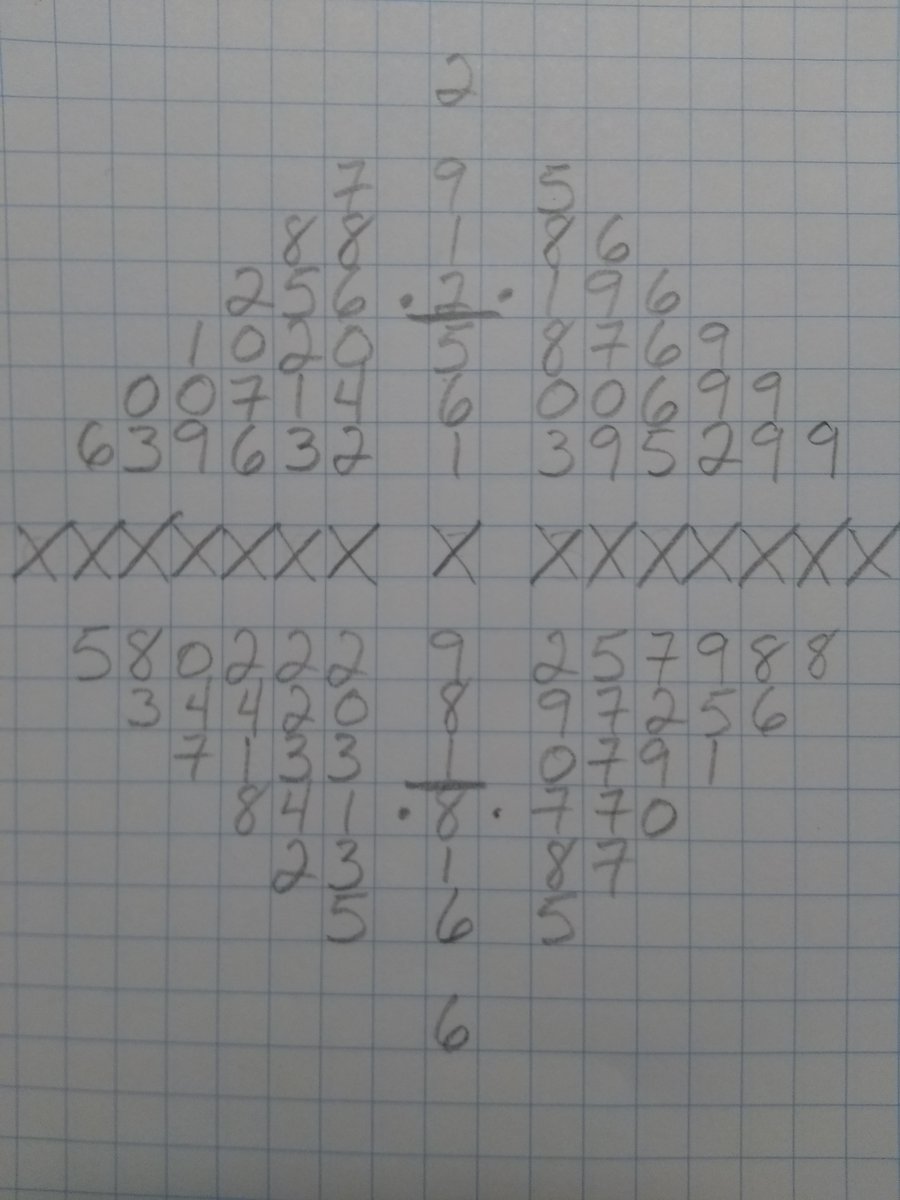 2
7 9 5
8 8 1 8 6
2 5 6 . 2 . 1 9 6
1 0 2 0 5 8 7 6 9
0 0 7 1 4 6 0 0 6 9 9
6 3 9 6 3 2 1 3 9 5 2 9 9
X X X X X X X X X X X X X X X
5 8 0 2 2 2 9 2 5 7 9 8 8
3 4 4 2 0 8 9 7 2 5 6
7 1 3 3 1 0 7 9 1
8 4 1 . 8 . 7 7 0
2 3 1 8 7
5 6 5
6